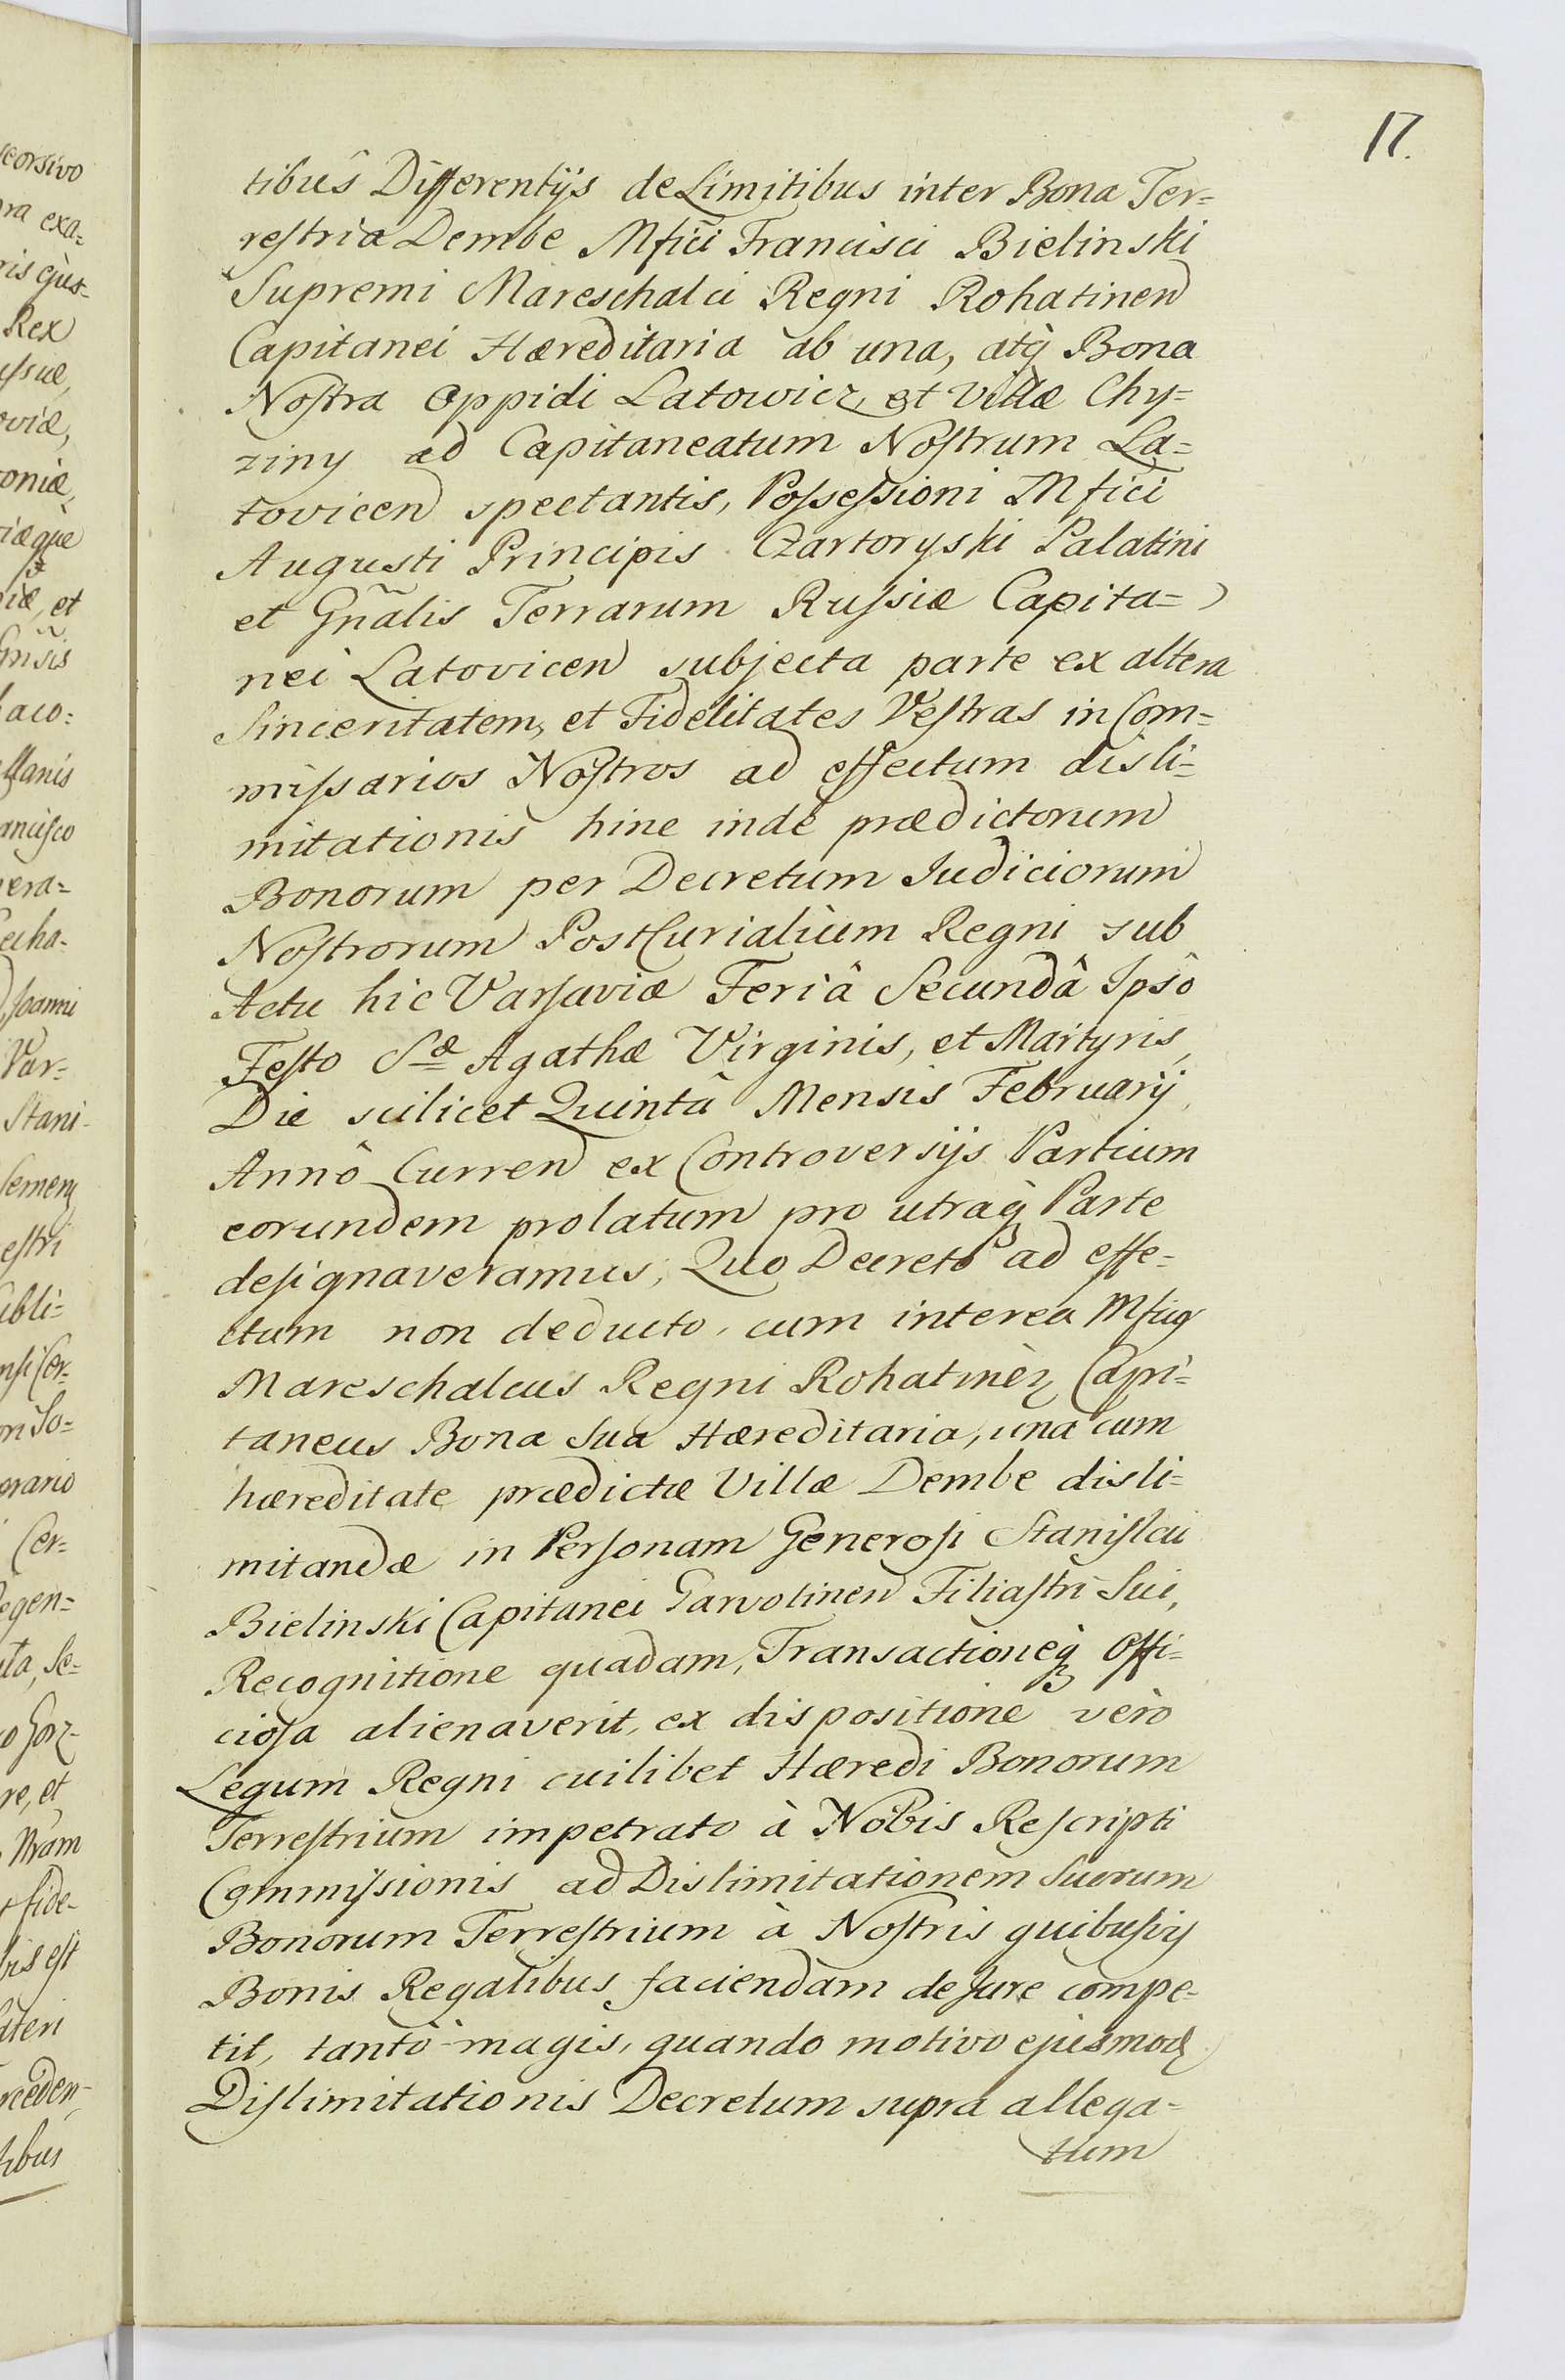 17.
tibus Differentijs de Limitibus inter Bona Ter=
restria Dembe Mfici Francisci Bielinski
Supremi Mareschalci Regni Rohatinen
Capitanei Hæreditaria ab una, atq̀ Bona
Nostra Oppidi Latowicz, et Villæ Chy=
ziny ad Capitaneatum Nostrum La=
tovicen spectantis, Possessioni Mfici
Augusti Principis Czartoryski Palatini
et Gñalis Terrarum Russiæ Capita=
nei Latovicen subjecta parte ex altera
Sinceritatem, et Fidelitates Vestras in Com=
missarios Nostros ad effectum disli=
mitationis hinc inde prædictorum
Bonorum per Decretum Iudiciorum
Nostrorum PostCurialium Regni sub
Actu hic Varsaviæ Feriâ Secundâ Ipsô
Festo Sæ Agathæ Virginis, et Martyris,
Die scilicet Quintâ Mensis Februarij
Annô Curren ex Controversijs Partium
eorundem prolatum pro utraq̀ Parte
designaveramus; Quo Decreto ad effe=
ctum non deducto, cum interea Mficus
Mareschalcus Regni Rohatinen Capi=
taneus Bona Sua Hæreditaria, una cum
hæreditate prædictæ Villæ Dembe disli=
mitandæ in Personam Generosi Stanislai
Bielinski Capitanei Garvolinen Filiastri Sui,
Recognitione quadam, Transactioneq̀ Offi=
ciosa alienaverit, ex dispositione vero
Legum Regni cuilibet Hæredi Bonorum
Terrestrium impetrato à Nobis Rescripti
Commissionis ad Dislimitationem Suorum
Bonorum Terrestrium à Nostris quibusvis
Bonis Regalibus faciendam de Jure compe=
tit, tantò magis, quando motivo ejusmodi
Dislimitationis Decretum supra allega=
tum